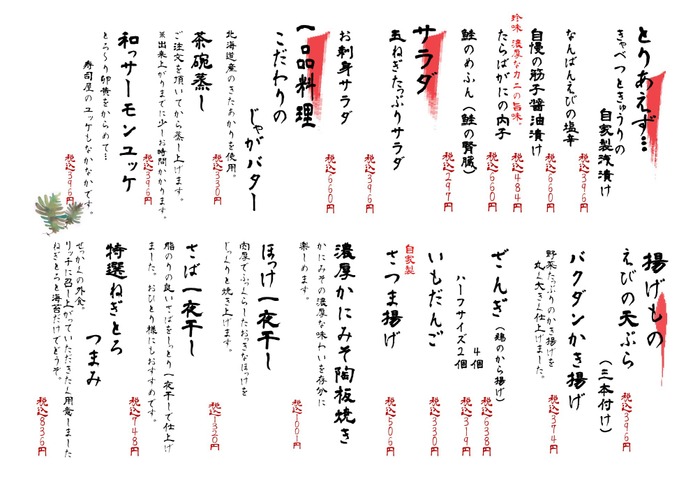 とりあえず…
きゃべつときゅうりの
自家製浅漬け
税込396円
なんばんえびの塩辛
税込660円
自慢の筋子醤油漬け
税込484円
珍味 濃厚なカニの旨味。
たらばがにの内子
税込660円
鮭のめふん(鮭の腎臓)
税込297円
サラダ
玉ねぎたっぷりサラダ
税込396円
お刺身サラダ
税込660円
一品料理
こだわりの
じゃがバター
北海道産のきたあかりを使用。
税込330円
茶碗蒸し
ご注文を頂いてから蒸し上げます。
※出来上がりまでに少しお時間かかります。
税込396円
和っサーモンユッケ
とろ〜り卵黄をからめて…
寿司屋のユッケもなかなかです。
税込396円
揚げもの
えびの天ぷら
(三本付け)
税込396円
バクダンかき揚げ
野菜たっぷりのかき揚げを
丸く大きく仕上げました。
税込374円
ざんぎ(鶏のから揚げ)
4個
税込638円
ハーフサイズ2個
税込319円
いもだんご
税込330円
自家製
さつま揚げ
税込506円
濃厚かにみそ陶板焼き
かにみその濃厚な味わいを存分に
楽しめます。
税込1001円
ほっけ一夜干し
肉厚でふっくらしたおおきなほっけを
じっくりと焼き上げます。
税込1320円
さば一夜干し
脂のりの良いさばをしっとり一夜干しで仕上げ
ました。おひとり様にもおすすめです。
税込748円
特選ねぎとろ
つまみ
せっかくの外食。
リッチに召し上がっていただきたく用意しました
ねぎとろと海苔だけでどうぞ。
税込836円